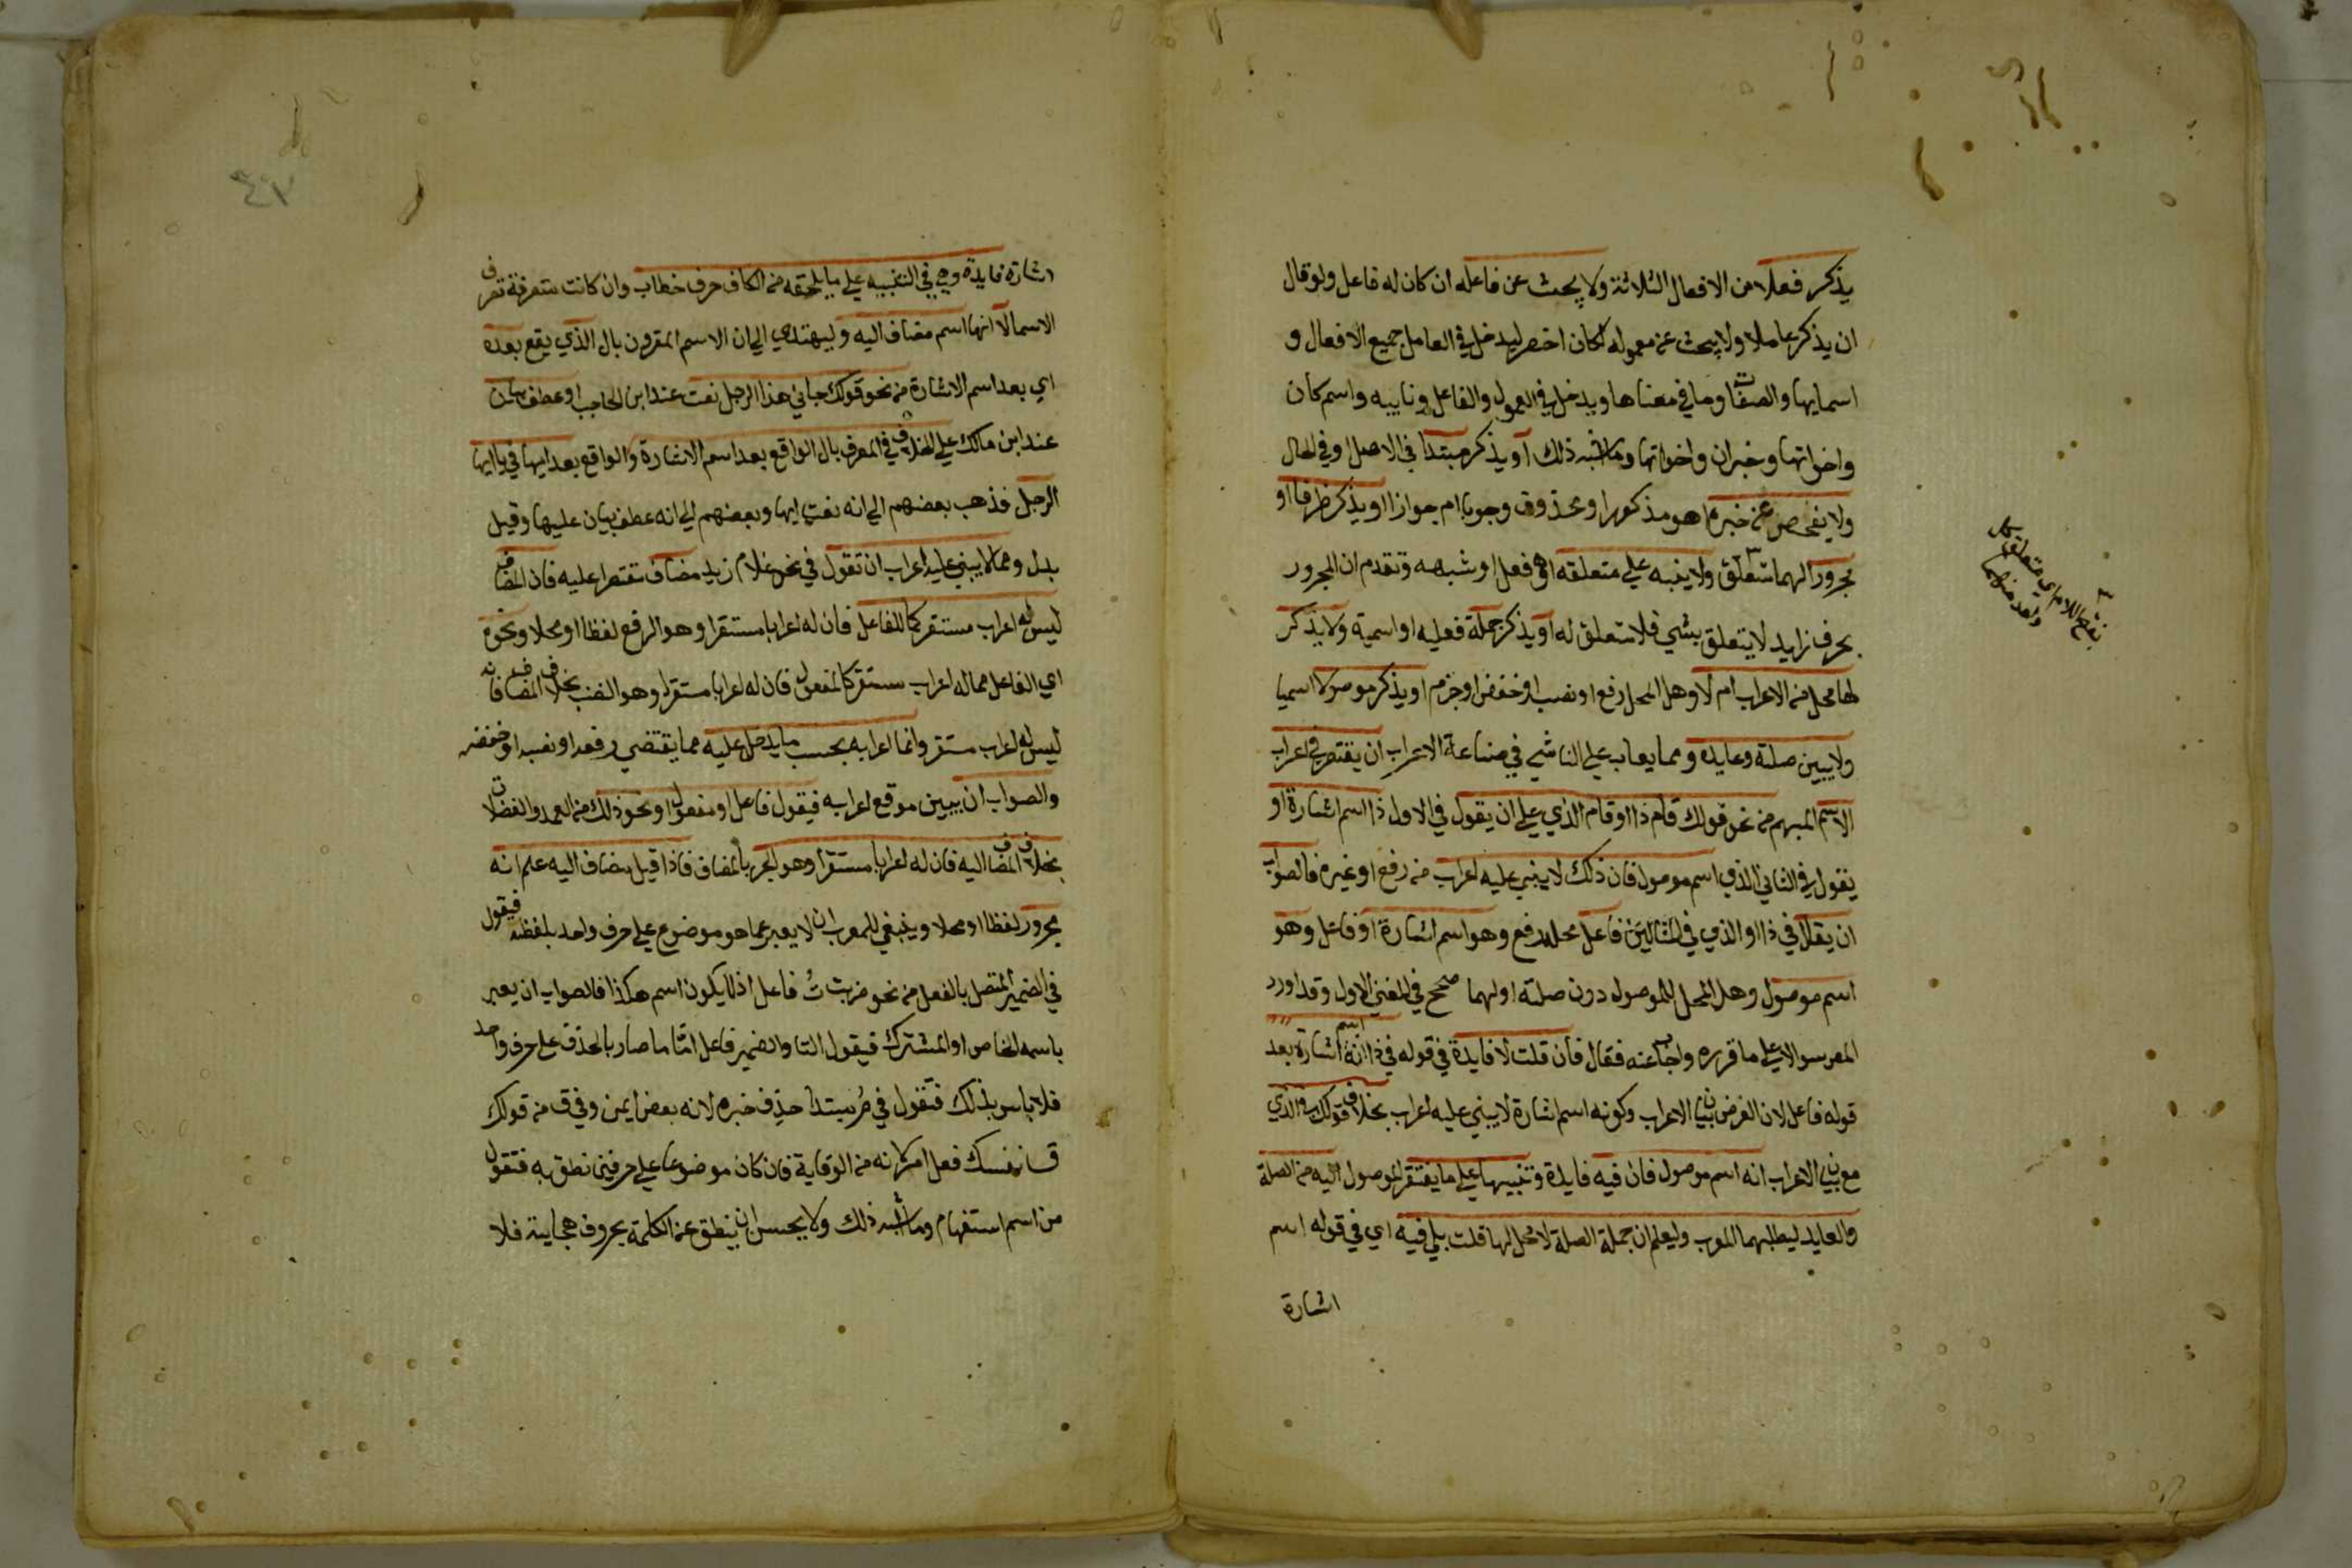 يذكر فعلا من الافعال الثلاثة ولا يبحث عن فاعله ان كان له فاعل ولو قال
ان يذكر عاملا ولا يبحث عن معموله لكان اخصر ليدخل في العامل جميع الافعال و
اسمايها والصفات وما في معناها ويدخل في المعمول والفاعل ونايبه واسم كان
واخواتها وخبر ان واخواتها وما اشبه ذلك او يذكر مبتدا في الاصل او في الحال
ولا يفحص عن خبره اهو مذكور او محذوف وجوبا ام جوازا او يذكر ظرفا او
مجرورا لهما متعلق ولا ينبه علي متعلقه اهو فعل او شبهه وتقدم ان المجرور
بحرف زايد لا يتعلق بشي فلا متعلق له او يذكر جملة فعليه او اسمية ولا يذكر
لها محل من الاعراب ام لا وهل المحل رفع او نصب او خفض او جزم او يذكر موصولا اسميا
ولا يبين صلته وعايده ومما يعاب علي الناشي في صناعة الاعراب ان يقتصر في اعراب
الاسم المبهم من نحو قولك قام ذا او قام الذي علي ان يقول في الاول ذا اسم اشارة او
يقول في الثاني الذي اسم موصول فان ذلك لا يبني عليه اعراب من رفع او غيره فالصواب
ان يقال في ذا او الذي في المثالين فاعل محله رفع وهو اسم اشارة او فاعل وهو
اسم موصول وهل المحل للموصول دون صلته او لهما صحح في المغني الاول وقد اورد
المص سوالا علي ما قرره واجاب عنه فقال فان قلت لا فايدة في قوله في ذا انه اسم اشارة بعد
قوله فاعل لان الغرض بيان الاعراب وكونه اسم اشارة لا يبني عليه اعراب بخلاف قولك في الذي
مع بيان الاعراب انه اسم موصول فان فيه فايدة وتنبيها علي ما يفتقر الموصول اليه من الصلة
والعايد ليطلبهما المعرب وليعلم ان جملة الصلة لا محل لها قلت بلي فيه اي في قوله اسم
اشارة
بفتح اللام اي متعلق كل
واحد منهما
٤٧
اشارة فايدة وهي التنبيه علي ما يلحقه من الكاف حرف خطاب وان كانت متصرفة تصرف
الاسما لا انها اسم مضاف اليه وليهتدي الي ان الاسم المقرون بال الذي يقع بعده
اي بعد اسم الاشارة من نحو قولك جاني هذا الرجل نعت عند ابن الحاجب او عطف بيان
عند ابن مالك علي الخلاف في المعرف بال الواقع بعد اسم الاشارة والواقع بعد ايها في يا ايها
الرجل فذهب بعضهم الي انه نعت ايها وبعضهم الي انه عطف بيان عليها وقيل
بدل ومما لا يبني عليه اعراب ان تقول في نحو غلام زيد مضاف مقتصرا عليه فان المضاف
ليس له اعراب مستقر كما للفاعل فان له اعرابا مستقرا وهو الرفع لفظا او محلا ونحوه
اي الفاعل مما له اعراب مستقر كالمفعول فان له اعرابا مستقرا وهو النصب بخلاف المضاف فانه
ليس له اعراب مستقر وانما اعرابه بحسب ما يدخل عليه مما يقتضي رفعه او نصبه او خفضه
والصواب ان يبين موقع اعرابه فيقول فاعل او مفعول او نحو ذلك من العمد والفضلات
بخلاف المضاف اليه فان له اعرابا مستقرا وهو الجر بالمضاف فاذا قيل مضاف اليه علم انه
مجرور لفظا او محلا وينبغي للمعرب ان لا يعبر عما هو موضوع علي حرف واحد بلفظه فيقول
في الضمير المتصل بالفعل من نحو ضربت تُ فاعل اذ لا يكون اسم هكذا فالصواب ان يعبر
باسمه الخاص او المشترك فيقول التا او الضمير فاعل امّا ما صار بالحذف علي حرف واحد
فلا باس بذلك فتقول في مُ مبتدا حذف خبره لانه بعض ايمن وفي ق من قولك
ق نفسك فعل امر لانه من الوقاية فان كان موضوعا علي حرفين نطق به فتقول
من اسم استفهام وما اشبه ذلك ولا يحسن ان ينطق عن الكلمة بحروف هجايه فلا